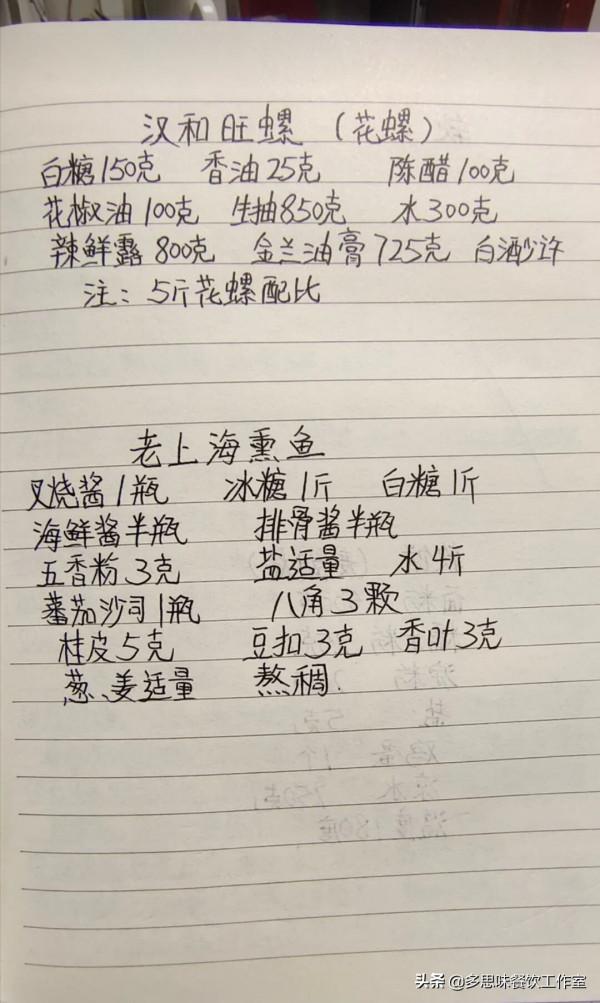 汉和旺螺（花螺）
白糖150克 香油25克 陈醋100克
花椒油100克 生抽850克 水300克
辣鲜露800克 金兰油膏725克 白酒少许
注：5斤花螺配比
老上海熏鱼
叉烧酱1瓶 冰糖1斤 白糖1斤
海鲜酱半瓶 排骨酱半瓶
五香粉3克 盐适量 水4斤
蕃茄沙司1瓶 八角3颗
桂皮5克 豆扣3克 香叶3克
葱、姜适量 熬稠.
头条 @多思味餐饮工作室